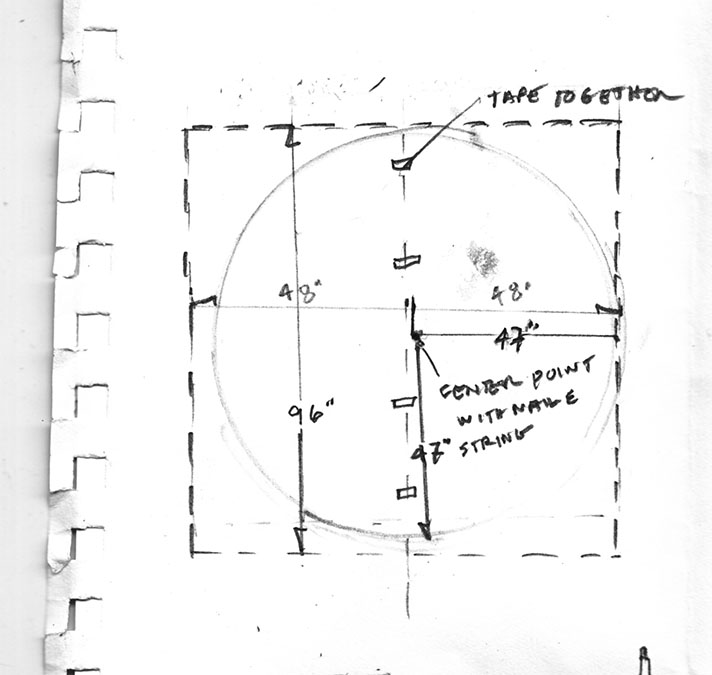 TAPE TOGETHER
48" 48"
47"
CENTER POINT
WITH NAIL &
STRING
96"
47"